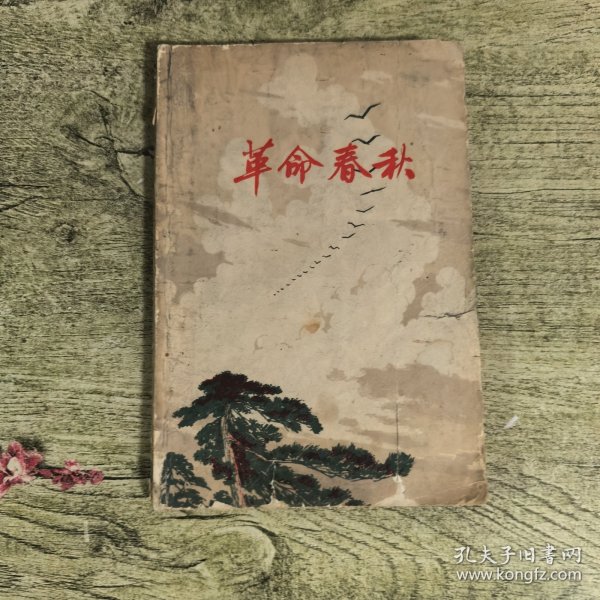 革命春秋
孔夫子旧書网
www.kongfz.com